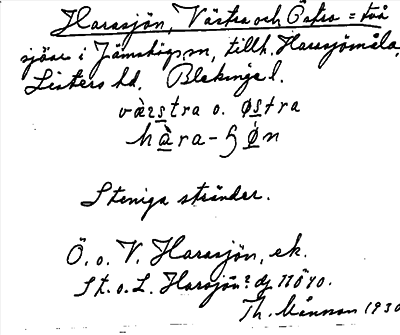 Harasjön, Västra och Östra = två
sjöar i Jämshögs sn, tillh. Harasjömåla,
Listers hd. Blekinge l.
västra o. østra
hàra-
Steniga stränder.
Ö. o. V. Harasjön, ek.
St. o. L. Harsjön? dj 1840.
Th. Månsson 1930